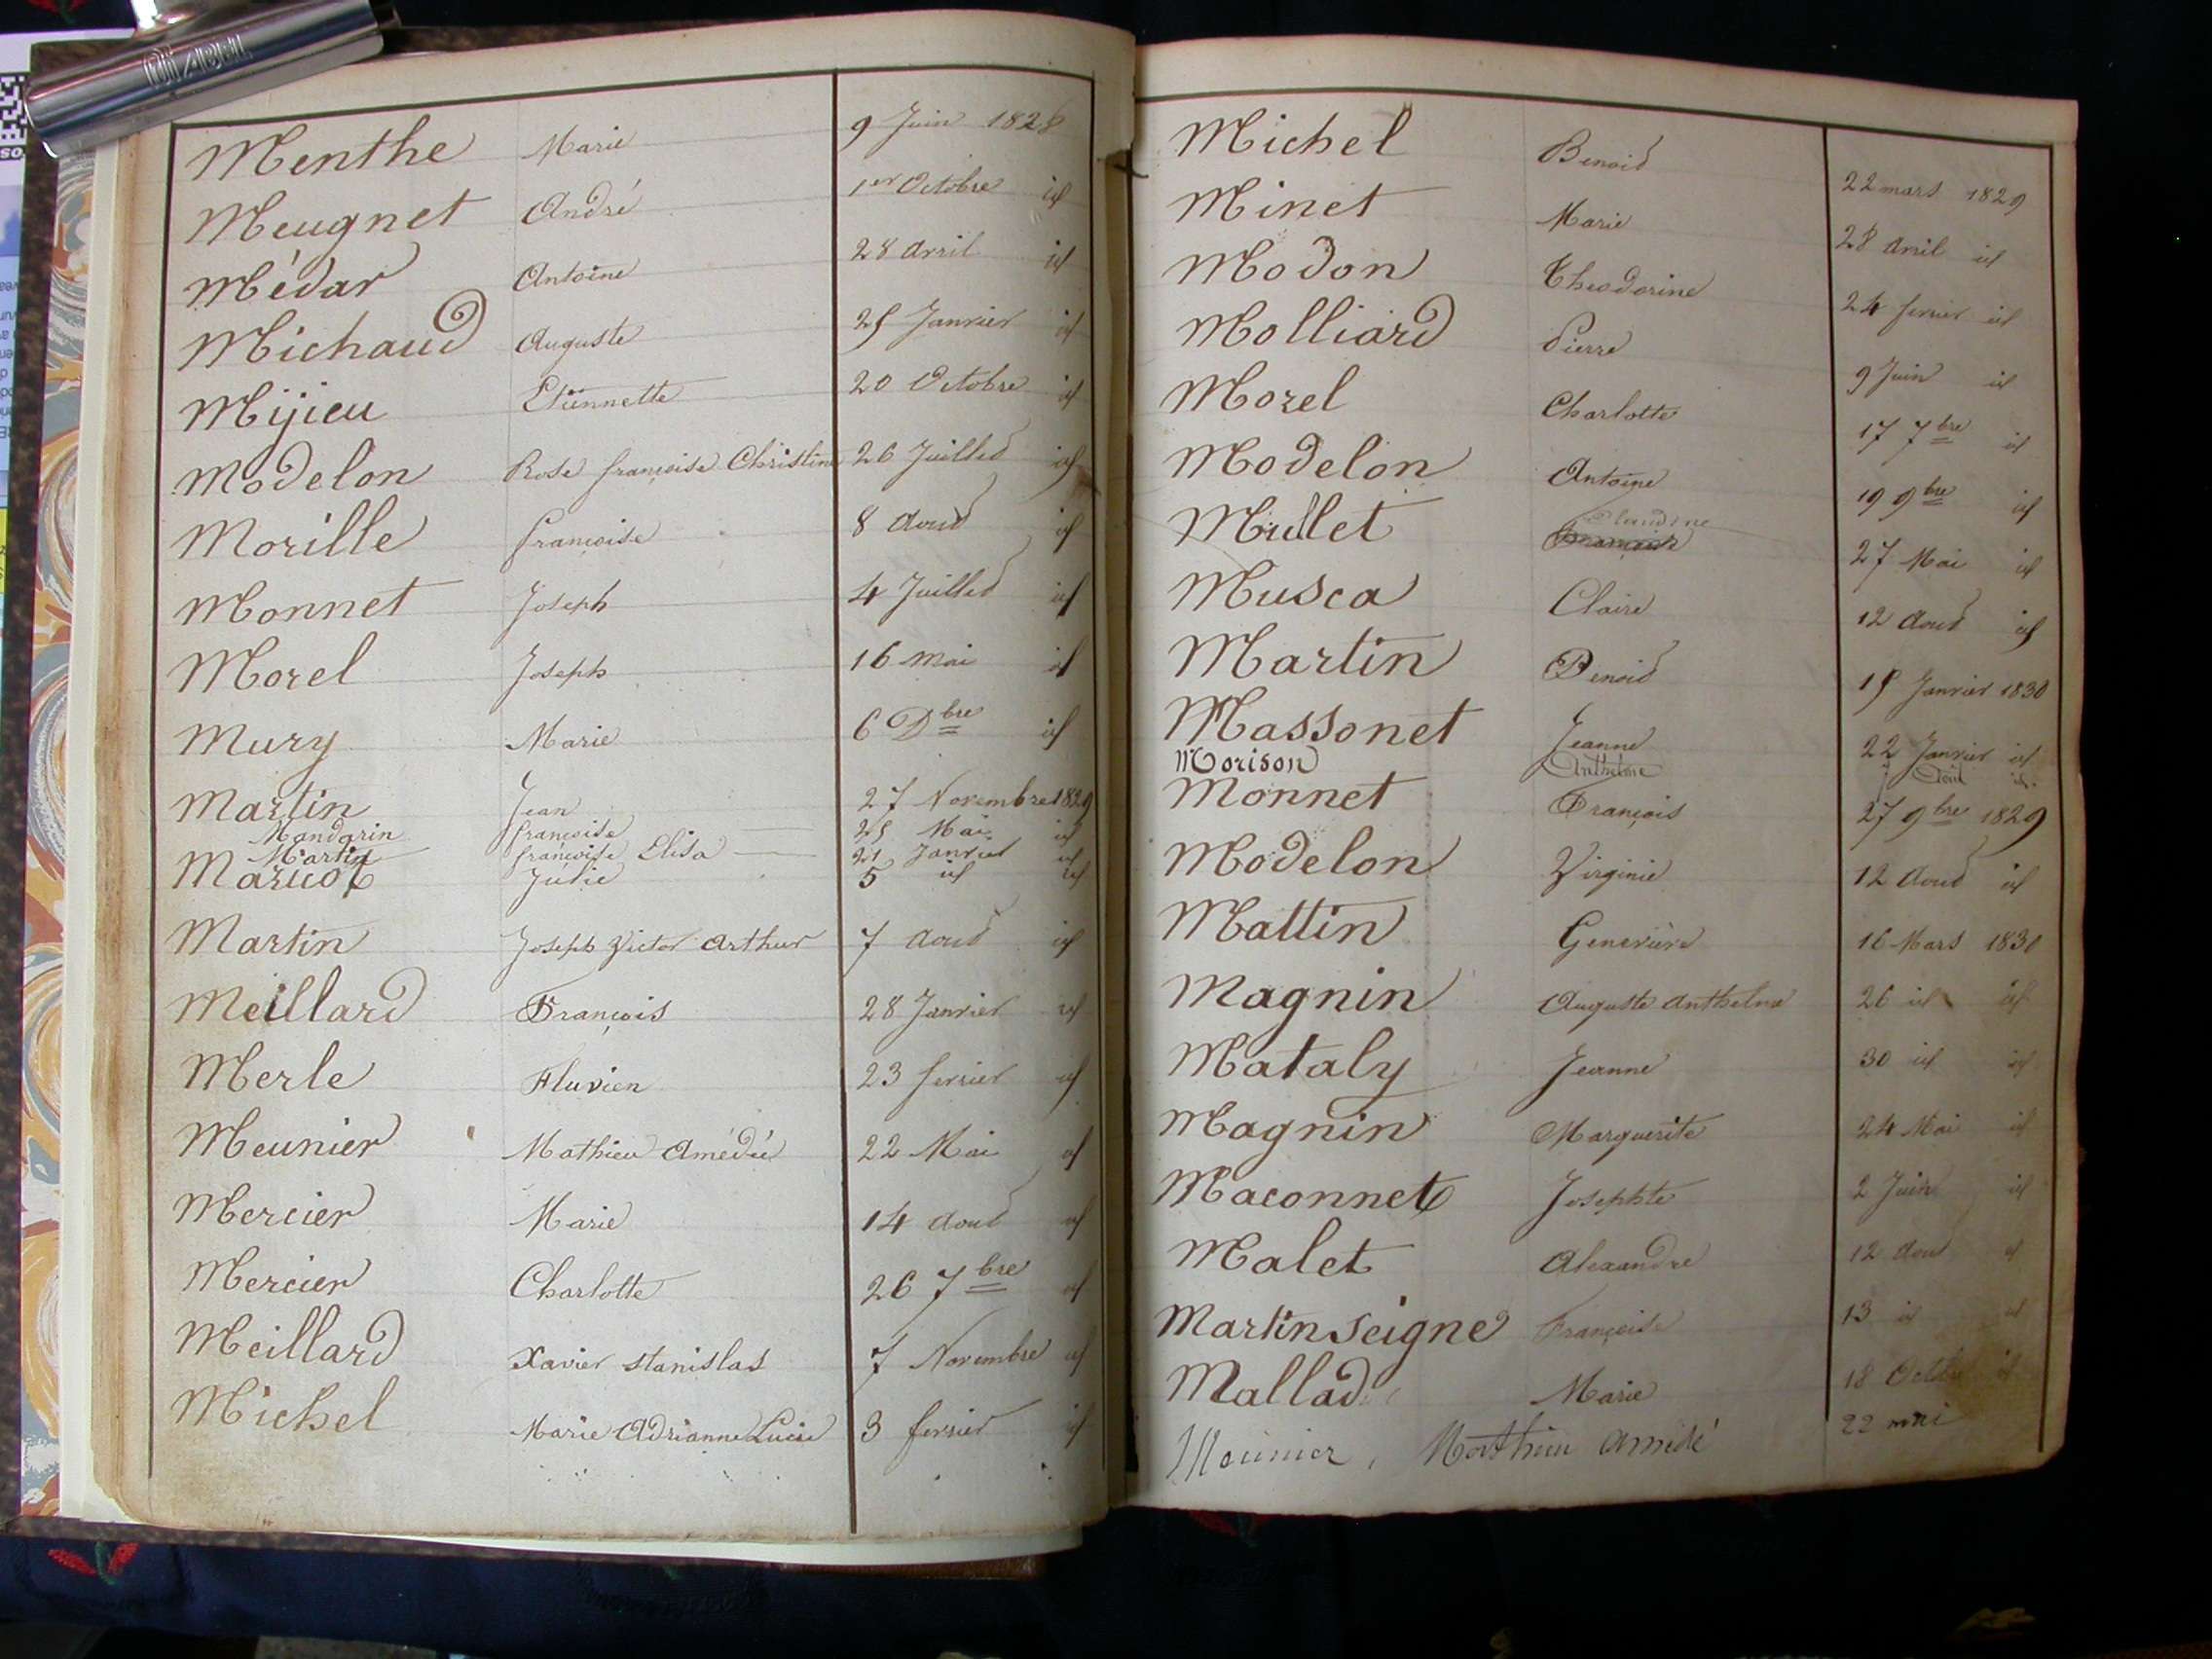 DIABEL
Menthe Marie 9 Juin 1828
Meugnet André 1er Octobre id
Médar Antoine 28 avril id
Michaud Auguste 25 Janvier id
Mijieu Etiennette 20 Octobre id
Modelon Rose françoise Christine 26 Juillet id
Morille françoise 8 aout id
Monnet Joseph 4 Juillet id
Morel Joseph 16 mai id
Mury Marie 6 Dbre id
Martin Jean 27 Novembre 1829
Mandarin françoise 25 Mai id
Martin françoise Elisa 21 Janvier id
Maricot Julie 5 id id
Martin Joseph Victor arthur 7 aout id
Meillard François 28 Janvier id
Merle Fluvien 23 fevrier id
Meunier Mathieu Amédée 22 Mai id
Mercier Marie 14 aout id
Mercier Charlotte 26 7bre id
Meillard Xavier stanislas 7 Novembre id
Michel Marie Adrianne Lucie 3 fevrier id
Michel Benoit 22 mars 1829
Minet Marie 28 avril id
Modon Théodorine 24 fevrier id
Molliard Pierre 9 Juin id
Morel Charlotte 17 7bre id
Modelon Antoine 19 9bre id
Mullet Claudine 27 Mai id
Musca Claire 12 aout id
Martin Benoit 15 Janvier 1830
Massonet Jeanne 22 Janvier id
Morison Anthelme Aout id.
Monnet François 27 9bre 1829
Modelon Virginie 12 aout id
Mattin Geneviève 16 Mars 1830
Magnin Auguste Anthelme 26 id id
Mataly Jeanne 30 id id
Magnin Marguerite 24 Mai id
Maconnet Josephte 2 Juin id
Malet Alexandre 12 aout id
Martin Seigne Françoise 13 id id
Mallad Marie 18 Octobre id
Meunier, Mathieu Amédé 22 mai